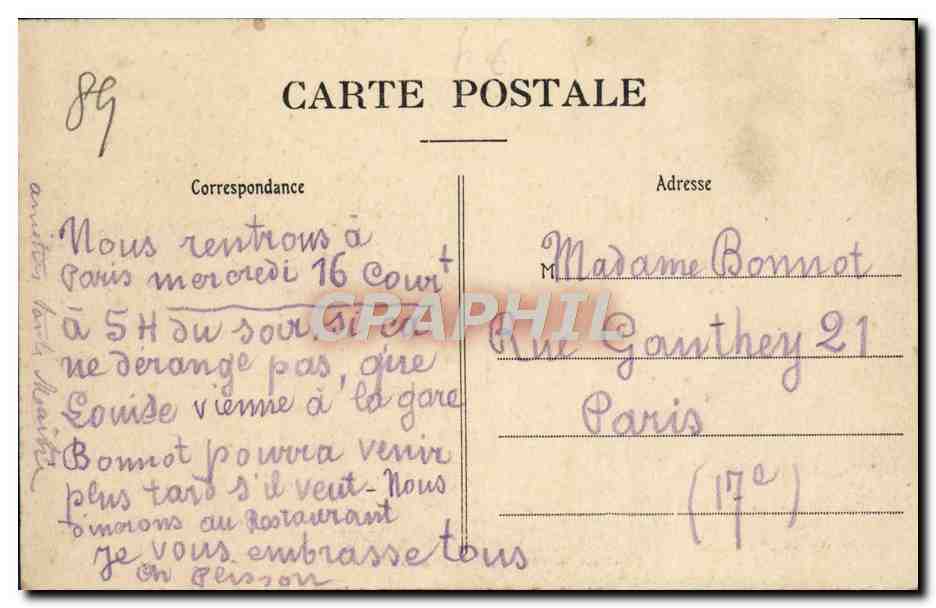 89
CARTE POSTALE
Correspondance
Nous rentrons à
Paris mercredi 16 Cour^t
à 5 H du soir si ça
ne derange pas, que
Louise vienne à la gare
Bonnot pourra venir
plus tard s'il veut - Nous
dinerons au Restaurant
Je vous embrasse tous
Ch Plisson
Adresse
M Madame Bonnot
Rue Gauthey 21
Paris
(17e)
CARTAPHIL